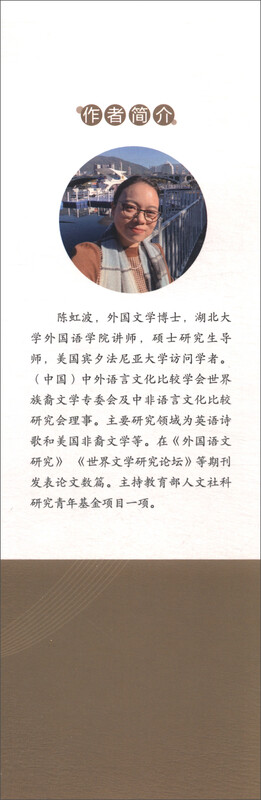 作者简介
陈虹波，外国文学博士，湖北大
学外国语学院讲师，硕士研究生导
师，美国宾夕法尼亚大学访问学者。
（中国）中外语言文化比较学会世界
族裔文学专委会及中非语言文化比较
研究会理事。主要研究领域为英语诗
歌和美国非裔文学等。在《外国语文
研究》《世界文学研究论坛》等期刊
发表论文数篇。主持教育部人文社科
研究青年基金项目一项。